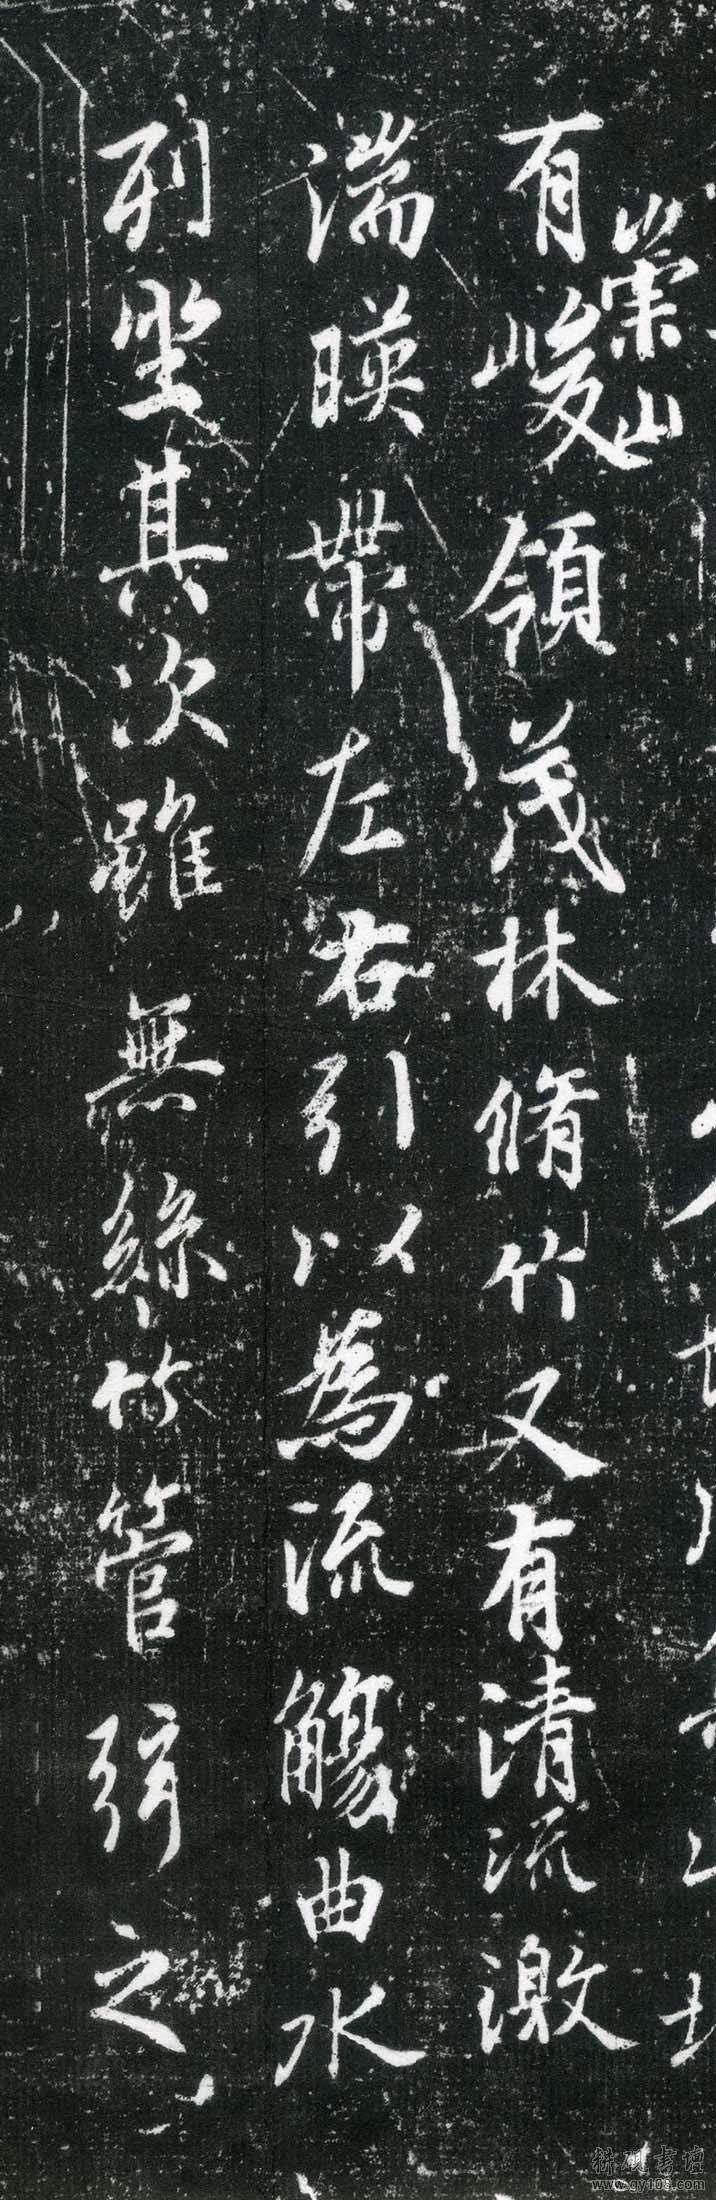 崇山
有峻領茂林脩竹又有清流激
湍暎帶左右引以為流觴曲水
列坐其次雖無絲竹管弦之
耕硯書壇
www.gy108.com